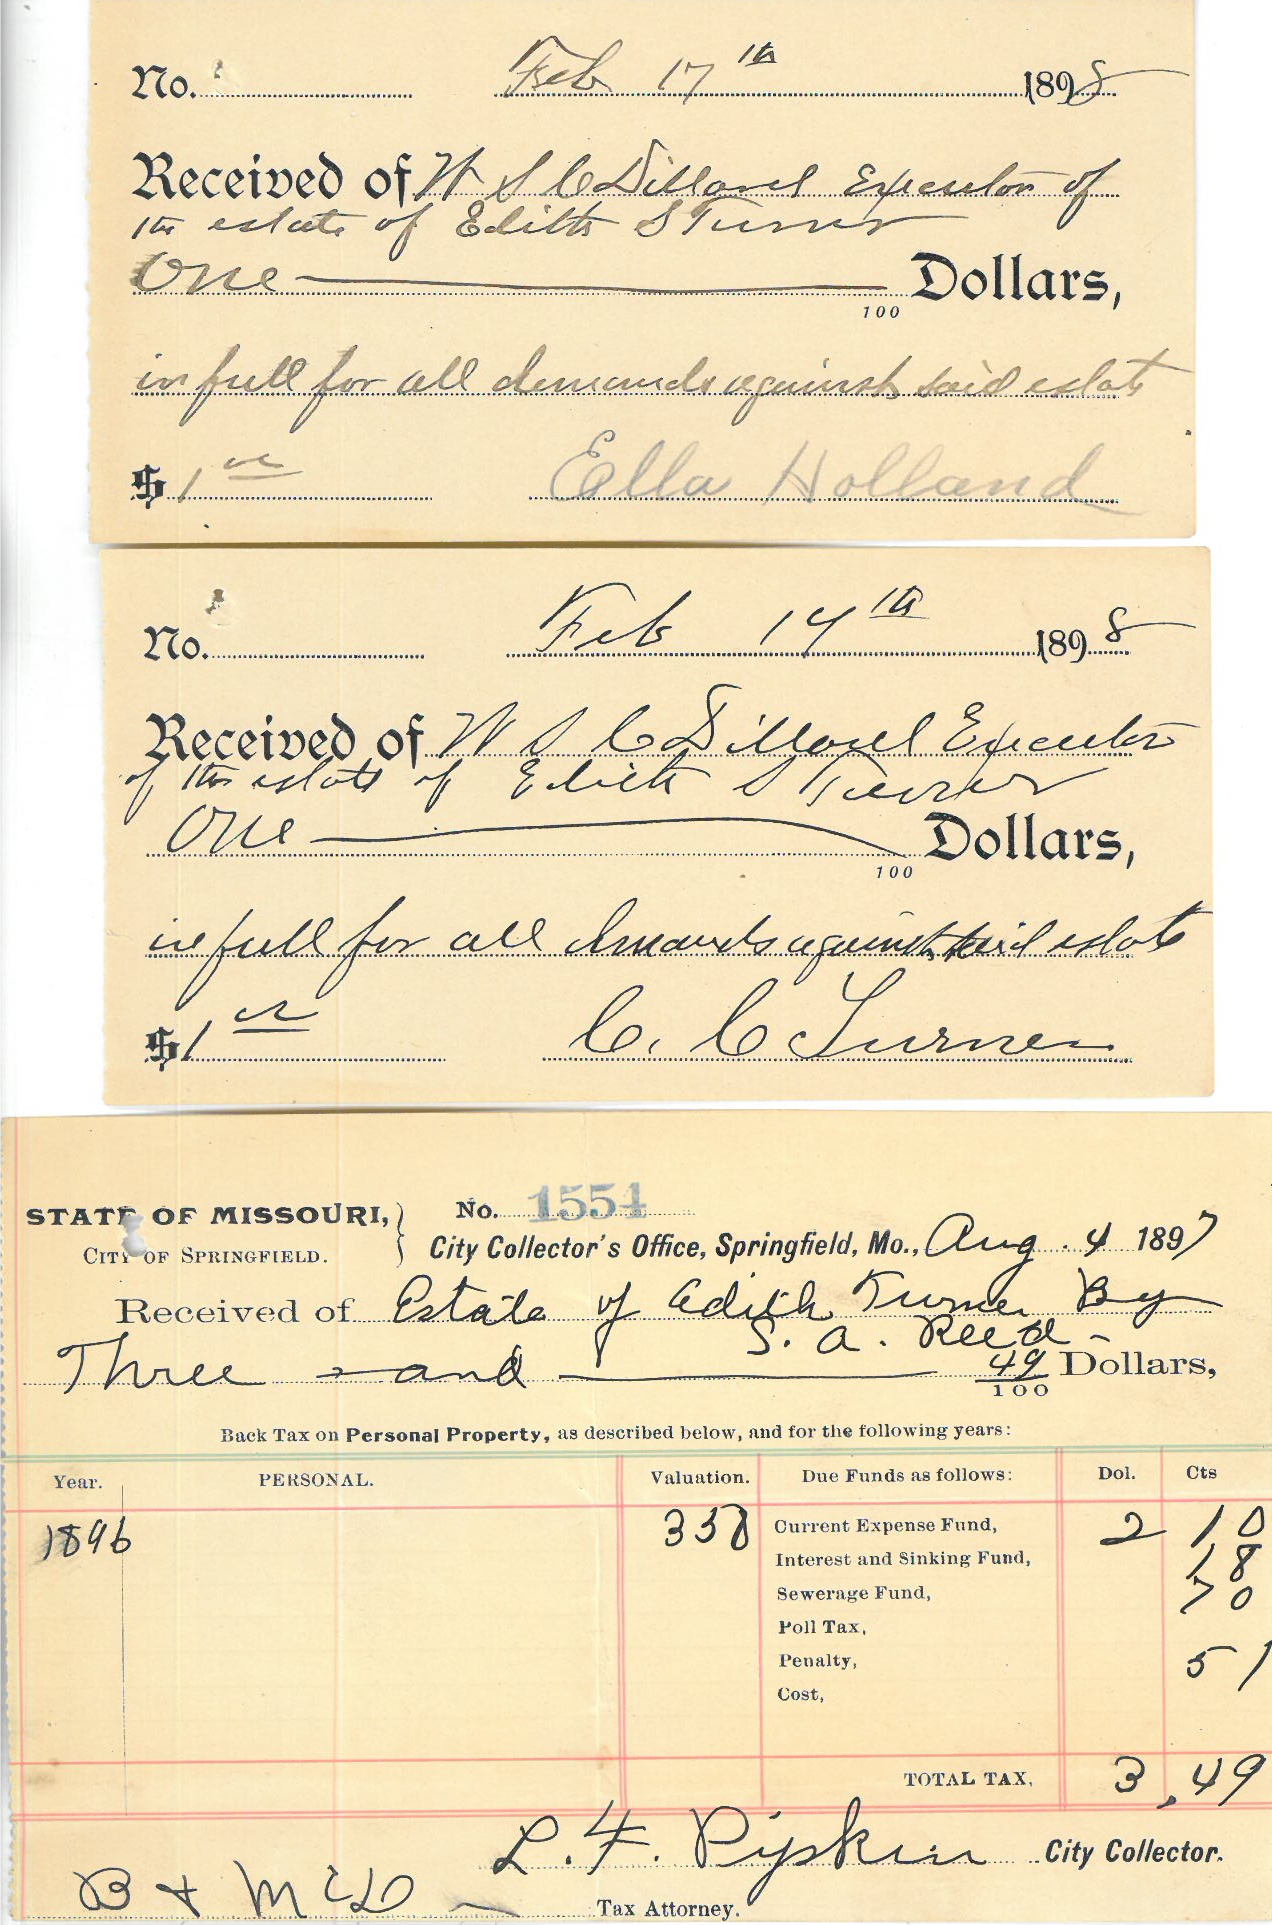 No. Feb 17th 1898
Received of W S C Dillard Executor of
the estate of Edith S Turner
One Dollars,
100
in full for all demands against said estate
$ 1 00 Ella Holland
No. Feb 14th 1898
Received of W S C Dillard Executor
of the estate of Edith S Turner
One Dollars,
100
in full for all demands against said estate
$ 1 00 C. C Turner
STATE OF MISSOURI, No. 1554
CITY OF SPRINGFIELD. City Collector's Office, Springfield, Mo., Aug. 4 1897
Received of Estate of Edith Turner By
S. A. Reed
Three and 49/100 Dollars,
Back Tax on Personal Property, as described below, and for the following years:
Year. PERSONAL. Valuation. Due Funds as follows: Dol. Cts
1896 350 Current Expense Fund, 2 10
Interest and Sinking Fund, 18
Sewerage Fund, 70
Poll Tax,
Penalty, 51
Cost,
TOTAL TAX, 3,49
L. F. Pipkin City Collector.
B & McD Tax Attorney.